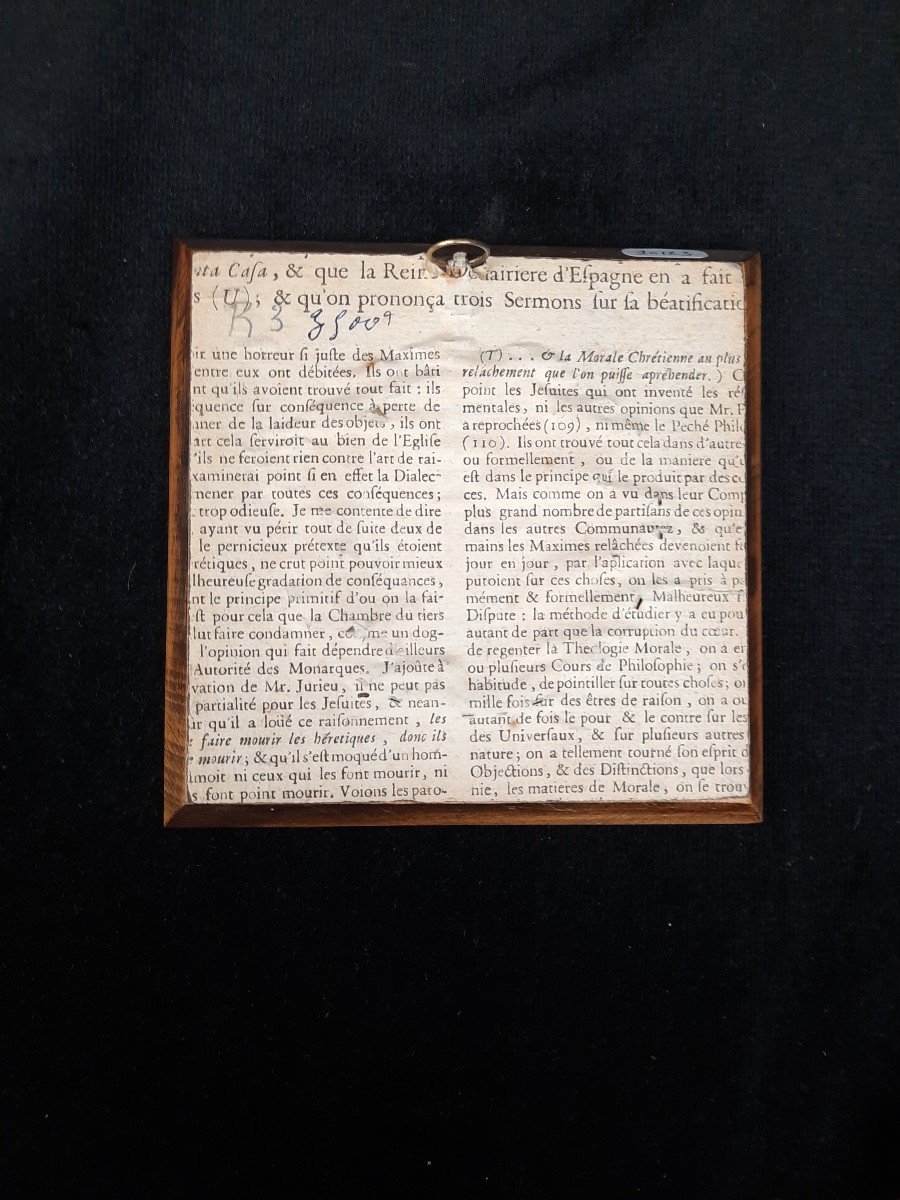 20123
nta Caſa, & que la Rein airiere d'Eſpagne en a fait
s (U); & qu'on prononça trois Sermons ſur ſa béatificatio
R 3 3500
ir une horreur ſi juſte des Maximes
entre eux ont débitées. Ils ont bâti
nt qu'ils avoient trouvé tout fait : ils
quence ſur conſéquence à perte de
iner de la laideur des objets, ils ont
art cela ſerviroit au bien de l'Egliſe
'ils ne feroient rien contre l'art de rai-
xaminerai point ſi en effet la Dialec-
mener par toutes ces conſéquences;
trop odieuſe. Je me contente de dire
ayant vu périr tout de ſuite deux de
le pernicieux prétexte qu'ils étoient
rétiques, ne crut point pouvoir mieux
lheureuſe gradation de conſéquances,
nt le principe primitif d'ou on la fai-
ſt pour cela que la Chambre du tiers
lut faire condamner, comme un dog-
l'opinion qui fait dépendre d'ailleurs
Autorité des Monarques. J'ajoûte à
vation de Mr. Jurieu, il ne peut pas
partialité pour les Jeſuites, & néan-
ir qu'il a loüé ce raiſonnement, les
faire mourir les héretiques, donc ils
mourir; & qu'il s'eſt moqué d'un hom-
imoit ni ceux qui les font mourir, ni
s font point mourir. Voions les paro-
(T) . . . & la Morale Chrétienne au plus
relâchement que l'on puiſſe apréhender.) C
point les Jeſuites qui ont inventé les réſ
mentales, ni les autres opinions que Mr. P
a reprochées (109), ni même le Peché Philo
(110). Ils ont trouvé tout cela dans d'autre
ou formellement, ou de la maniere qu'u
eſt dans le principe qui le produit par des co
ces. Mais comme on a vu dans leur Comp
plus grand nombre de partiſans de ces opin
dans les autres Communautez, & qu'e
mains les Maximes relâchées devenoient f
jour en jour, par l'aplication avec laque
putoient ſur ces choſes, on les a pris à pa
mément & formellement. Malheureux f
Diſpute : la méthode d'étudier y a eu pou
autant de part que la corruption du cœur.
de regenter la Theologie Morale, on a en
ou pluſieurs Cours de Philoſophie; on s'e
habitude, de pointiller ſur toutes choſes; o
mille fois ſur des êtres de raiſon, on a ou
autant de fois le pour & le contre ſur les
des Univerſaux, & ſur pluſieurs autres
nature; on a tellement tourné ſon eſprit d
Objections, & des Diſtinctions, que lors
nie, les matieres de Morale, on ſe trouv